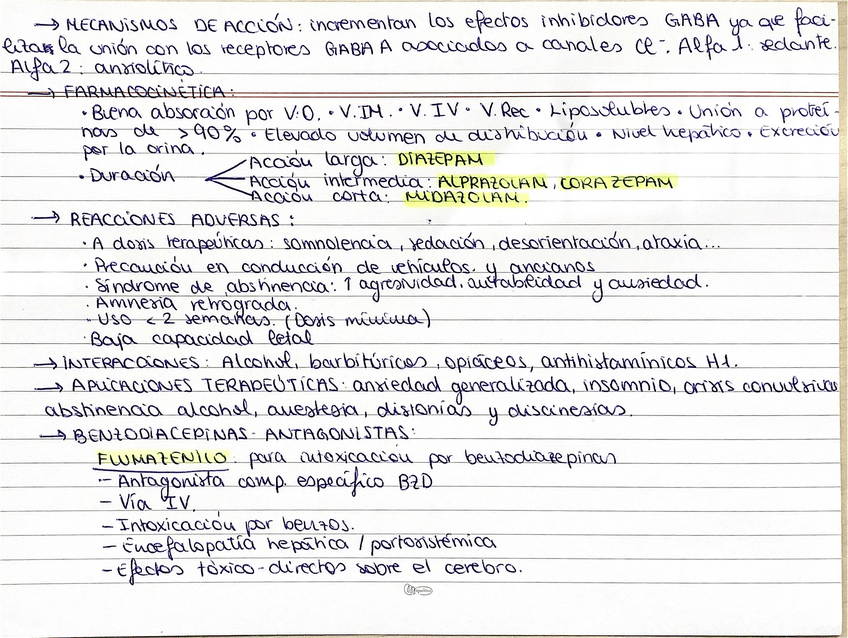 → MECANISMOS DE ACCIÓN: incrementan los efectos inhibidores GABA ya que faci-
litan la unión con los receptores GABA A asociados a canales Cl⁻. Alfa 1: sedante.
Alfa 2: ansiolítico.
→ FARMACOCINÉTICA:
· Buena absorción por V.O. · V.IM. · V.IV · V.Rec · Liposolubles · Unión a proteí-
nas de >90% · Elevado volumen de distribución · Nivel hepático · Excreción
por la orina.
· Duración
Acción larga: DIAZEPAM
Acción intermedia: ALPRAZOLAM, LORAZEPAM
Acción corta: MIDAZOLAM.
→ REACCIONES ADVERSAS:
· A dosis terapéuticas: somnolencia, sedación, desorientación, ataxia...
· Precaución en conducción de vehículos. y ancianos
· Síndrome de abstinencia: ↑ agresividad. irritabilidad y ansiedad.
· Amnesia retrógrada.
· USO < 2 semanas. (Dosis mínima)
· Baja capacidad letal
→ INTERACCIONES: Alcohol, barbitúricos, opiáceos, antihistamínicos H1.
→ APLICACIONES TERAPEÚTICAS: ansiedad generalizada, insomnio, crisis convulsivas
abstinencia alcohol, anestesia, distonías y discinesias.
→ BENZODIACEPINAS - ANTAGONISTAS:
FLUMAZENILO. para intoxicación por benzodiazepinas
- Antagonista comp. específico BZD
- Vía IV.
- Intoxicación por benzos.
- Encefalopatía hepática / portosistémica
- Efectos tóxico-directos sobre el cerebro.